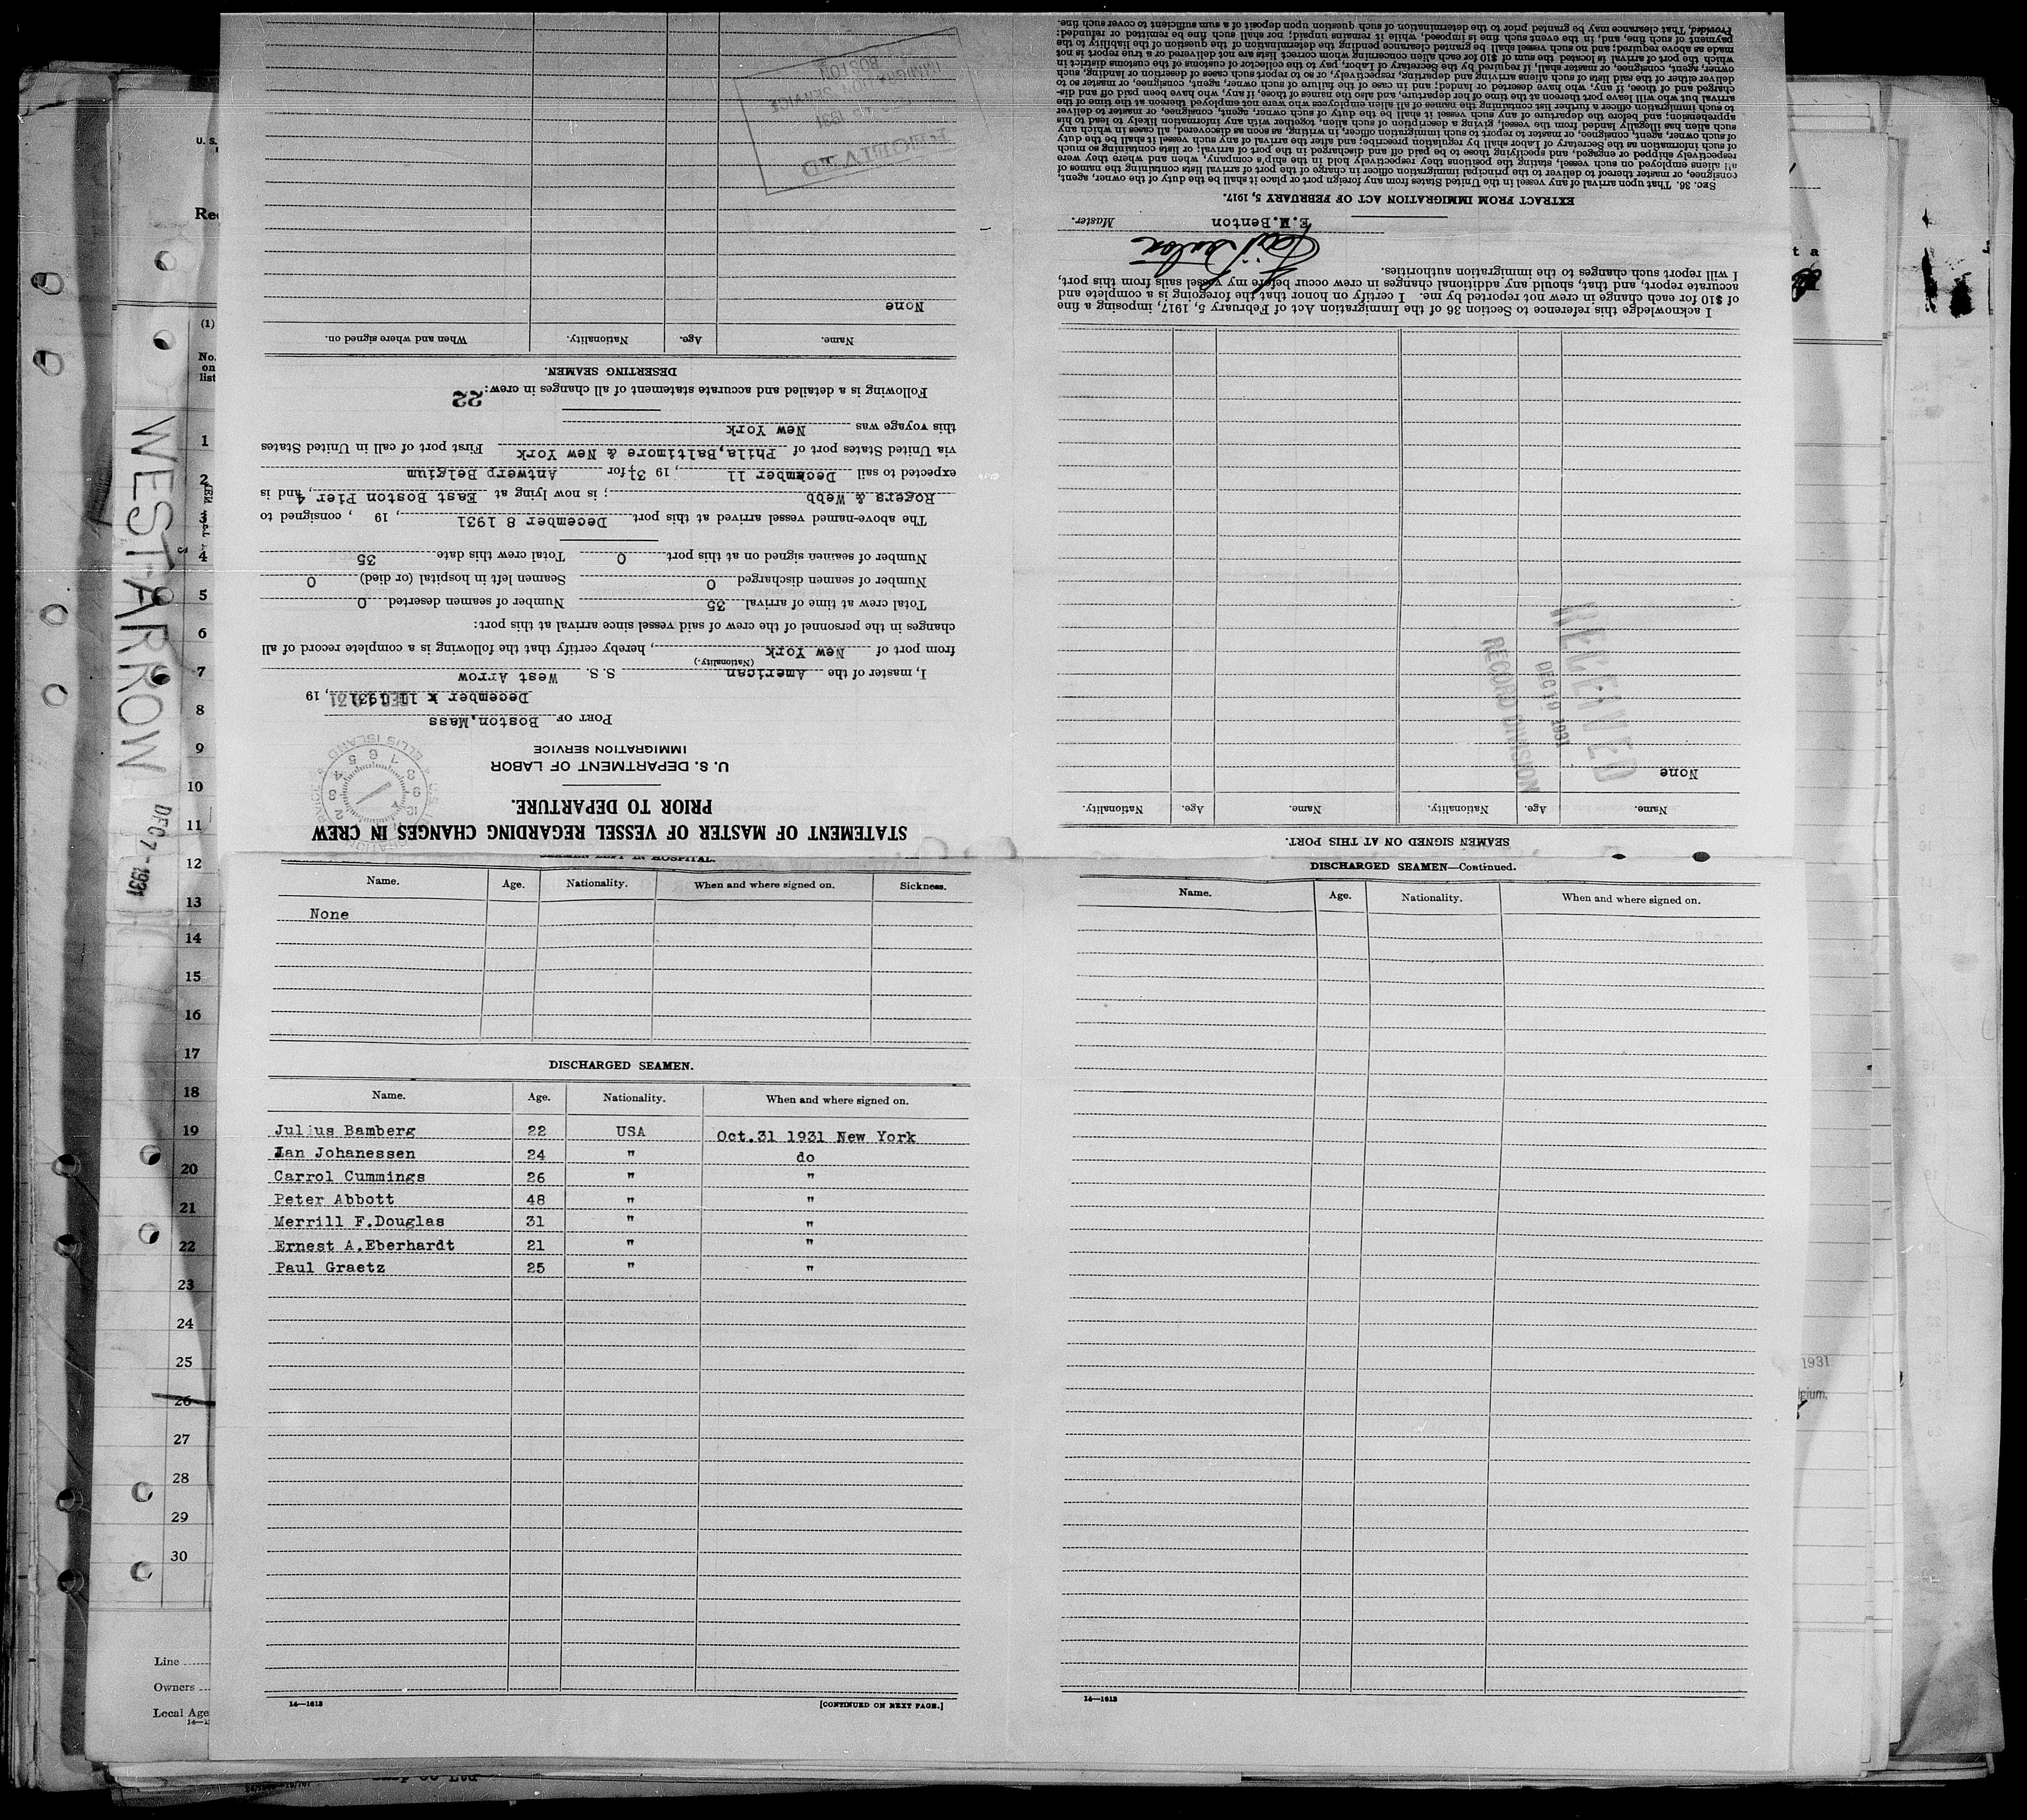 STATEMENT OF MASTER OF VESSEL REGARDING CHANGES IN CREW
PRIOR TO DEPARTURE.
U. S. DEPARTMENT OF LABOR
IMMIGRATION SERVICE
PORT OF Boston,Mass
December 11 1931, 19
I, master of the American S. S. West Arrow
(Nationality.)
from port of New York, hereby certify that the following is a complete record of all
changes in the personnel of the crew of said vessel since arrival at this port:
Total crew at time of arrival 35 Number of seamen deserted 0
Number of seamen discharged 0 Seamen left in hospital (or died) 0
Number of seamen signed on at this port 0 Total crew this date 35
The above-named vessel arrived at this port December 8 1931, 19 , consigned to
Rogers & Webb; is now lying at East Boston Pier 4, and is
expected to sail December 11, 1931 for Antwerp Belgium
via United States port of Phila,Baltimore & New York First port of call in United States
this voyage was New York
Following is a detailed and accurate statement of all changes in crew:
22
DESERTING SEAMEN.
Name. Age. Nationality. When and where signed on.
None
RECEIVED
1931
BOSTON
SEAMEN SIGNED ON AT THIS PORT.
Name. Age. Nationality. Name. Age. Nationality.
None
RECEIVED
DEC 19 1931
RECORD DIVISION
I acknowledge this reference to Section 36 of the Immigration Act of February 5, 1917, imposing a fine
of $10 for each change in crew not reported by me. I certify on honor that the foregoing is a complete and
accurate report, and that, should any additional changes in crew occur before my vessel sails from this port,
I will report such changes to the immigration authorities.
E.M.Benton Master.
EXTRACT FROM IMMIGRATION ACT OF FEBRUARY 5, 1917.
SEC. 36. That upon arrival of any vessel in the United States from any foreign port or place it shall be the duty of the owner, agent,
consignee, or master thereof to deliver to the principal immigration officer in charge of the port of arrival lists containing the names of
all aliens employed on such vessel, stating the positions they respectively hold in the ship's company, when and where they were
respectively shipped or engaged, and specifying those to be paid off and discharged in the port of arrival; or lists containing so much
of such information as the Secretary of Labor shall by regulation prescribe; and after the arrival of any such vessel it shall be the duty
of such owner, agent, consignee, or master to report to such immigration officer, in writing, as soon as discovered, all cases in which any
such alien has illegally landed from the vessel, giving a description of such alien, together with any information likely to lead to his
apprehension; and before the departure of any such vessel it shall be the duty of such owner, agent, consignee, or master to deliver
to such immigration officer a further list containing the names of all alien employees who were not employed thereon at the time of the
arrival but who will leave port thereon at the time of her departure, and also the names of those, if any, who have been paid off and dis-
charged and of those, if any, who have deserted or landed; and in case of the failure of such owner, agent, consignee, or master so to
deliver either of the said lists of such aliens arriving and departing, respectively, or so to report such cases of desertion or landing, such
owner, agent, consignee, or master shall, if required by the Secretary of Labor, pay to the collector of customs of the customs district in
which the port of arrival is located the sum of $10 for each alien concerning whom correct lists are not delivered or a true report is not
made as above required; and no such vessel shall be granted clearance pending the determination of the question of the liability to the
payment of such fine, and, in the event such fine is imposed, while it remains unpaid; nor shall such fine be remitted or refunded:
Provided, That clearance may be granted prior to the determination of such question upon deposit of a sum sufficient to cover such fine.
SEAMEN LEFT IN HOSPITAL.
Name. Age. Nationality. When and where signed on. Sickness.
None
DISCHARGED SEAMEN.
Name. Age. Nationality. When and where signed on.
Julius Bamberg 22 USA Oct.31 1931 New York
Ian Johanessen 24 " do
Carrol Cummings 26 " "
Peter Abbott 48 " "
Merrill F.Douglas 31 " "
Ernest A.Eberhardt 21 " "
Paul Graetz 25 " "
14—1613
[CONTINUED ON NEXT PAGE.]
DISCHARGED SEAMEN—Continued.
Name. Age. Nationality. When and where signed on.
14—1613
WEST ARROW
DEC 7-1931
U. S.
(1)
No.
on
list
1
2
3
4
5
6
7
8
9
10
11
12
13
14
15
16
17
18
19
20
21
22
23
24
25
26
27
28
29
30
Line
Owners
Local Age
1931